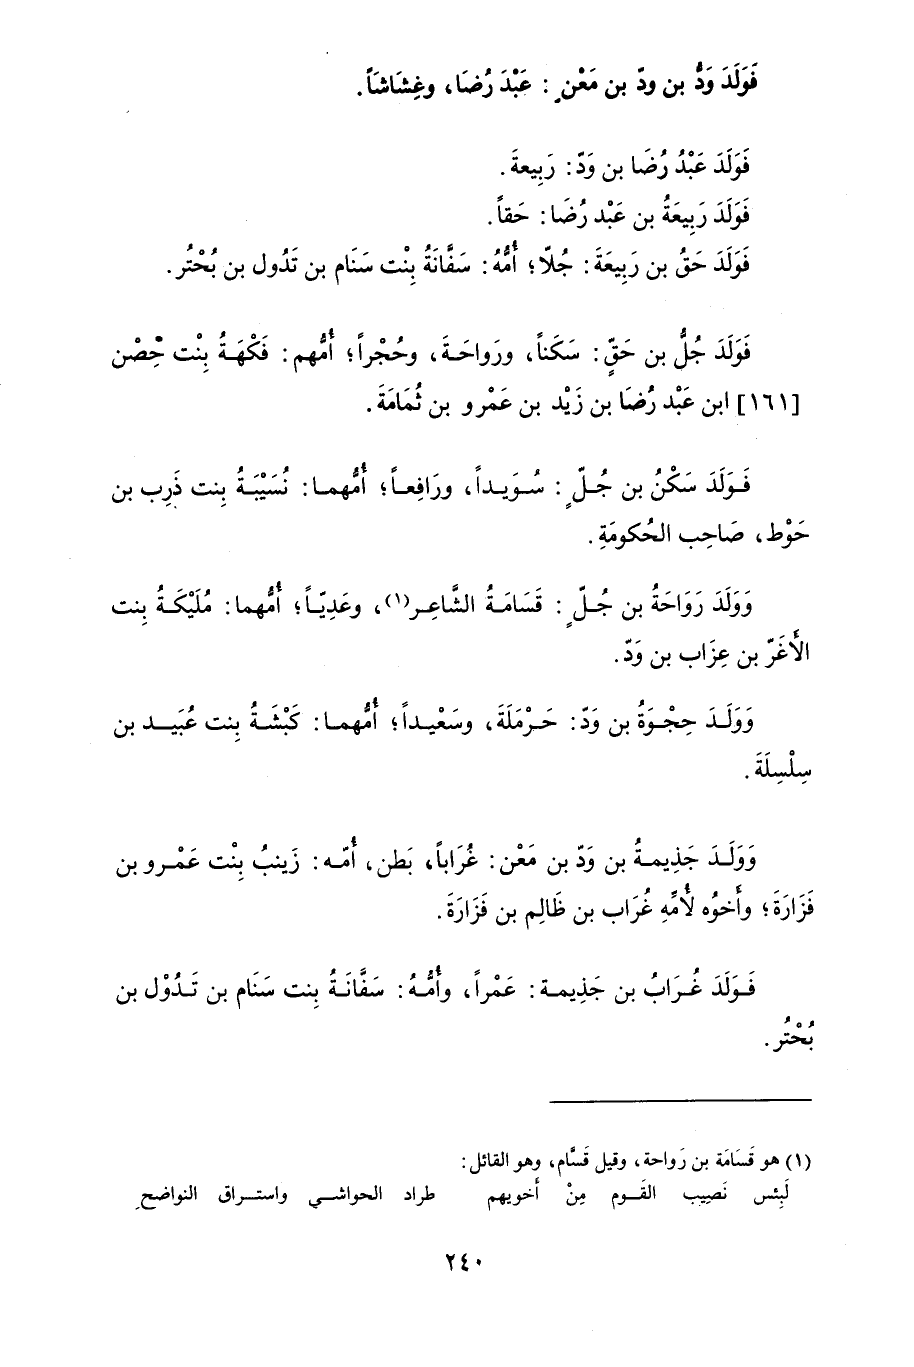 فَوَلَدَ وَدُّ بن ودّ بن مَعْنٍ : عَبْدَ رُضَا، وغِشَاشَاً.
فَوَلَدَ عَبْدُ رُضَا بن وَدّ: رَبِيعةَ.
فَوَلَدَ رَبِيعَةُ بن عَبْد رُضَا: حَقاً.
فَوَلَدَ حَقُ بن رَبِيعَةَ: جُلّا؛ أُمُّهُ: سَفَّانَةُ بِنْت سَنَام بن تَدُول بن بُحْتُر.
فَوَلَدَ جُلُّ بن حَقٍّ: سَكَناً، ورَواحَةَ، وحُجْراً؛ أمُّهم: فَكْهَةُ بِنْت حِصْن
[١٦١] ابن عَبْد رُضَا بن زَيْد بن عَمْرو بن ثُمَامَةَ.
فَوَلَدَ سَكْنُ بن جُلٍّ : سُوَيداً، ورَافِعاً؛ أمُّهما: نُسَيْبَةُ بِنت ذَرِب بن
حَوْط، صَاحِب الحُكومَةِ.
وَوَلَدَ رَوَاحَةُ بن جُلٍّ : قَسَامَةُ الشَّاعِر(١)، وعَدِيّاً؛ أمُّهما: مُلَيْكَةُ بِنت
الأَغَرّ بن عِزَاب بن وَدّ.
وَوَلَدَ حِجْوَةُ بن وَدّ: حَرْمَلَةَ، وسَعْيداً؛ أمُّهما: كَبْشَةُ بِنت عُبَيد بن
سِلْسِلَةَ.
وَوَلَدَ جَذِيمةُ بن وَدّ بن مَعْن: غُرَاباً، بَطن، أمّه: زَينبُ بِنْت عَمْرو بن
فَزَارَةَ؛ وأخوُه لأمِّهِ غُرَاب بن ظَالِم بن فَزَارَةَ.
فَوَلَدَ غُرَابُ بن جَذِيمة: عَمْراً، وأمُّهُ: سَفَّانَةُ بِنت سَنَام بن تَدُوْل بن
بُحْتُر.
(١) هو قَسَامَة بن رَواحة، وقيل قَسَّام، وهو القائل:
لَبِئس نَصِيب القَوم مِنْ أخويهم طراد الحواشي واستراق النواضحِ
٢٤٠